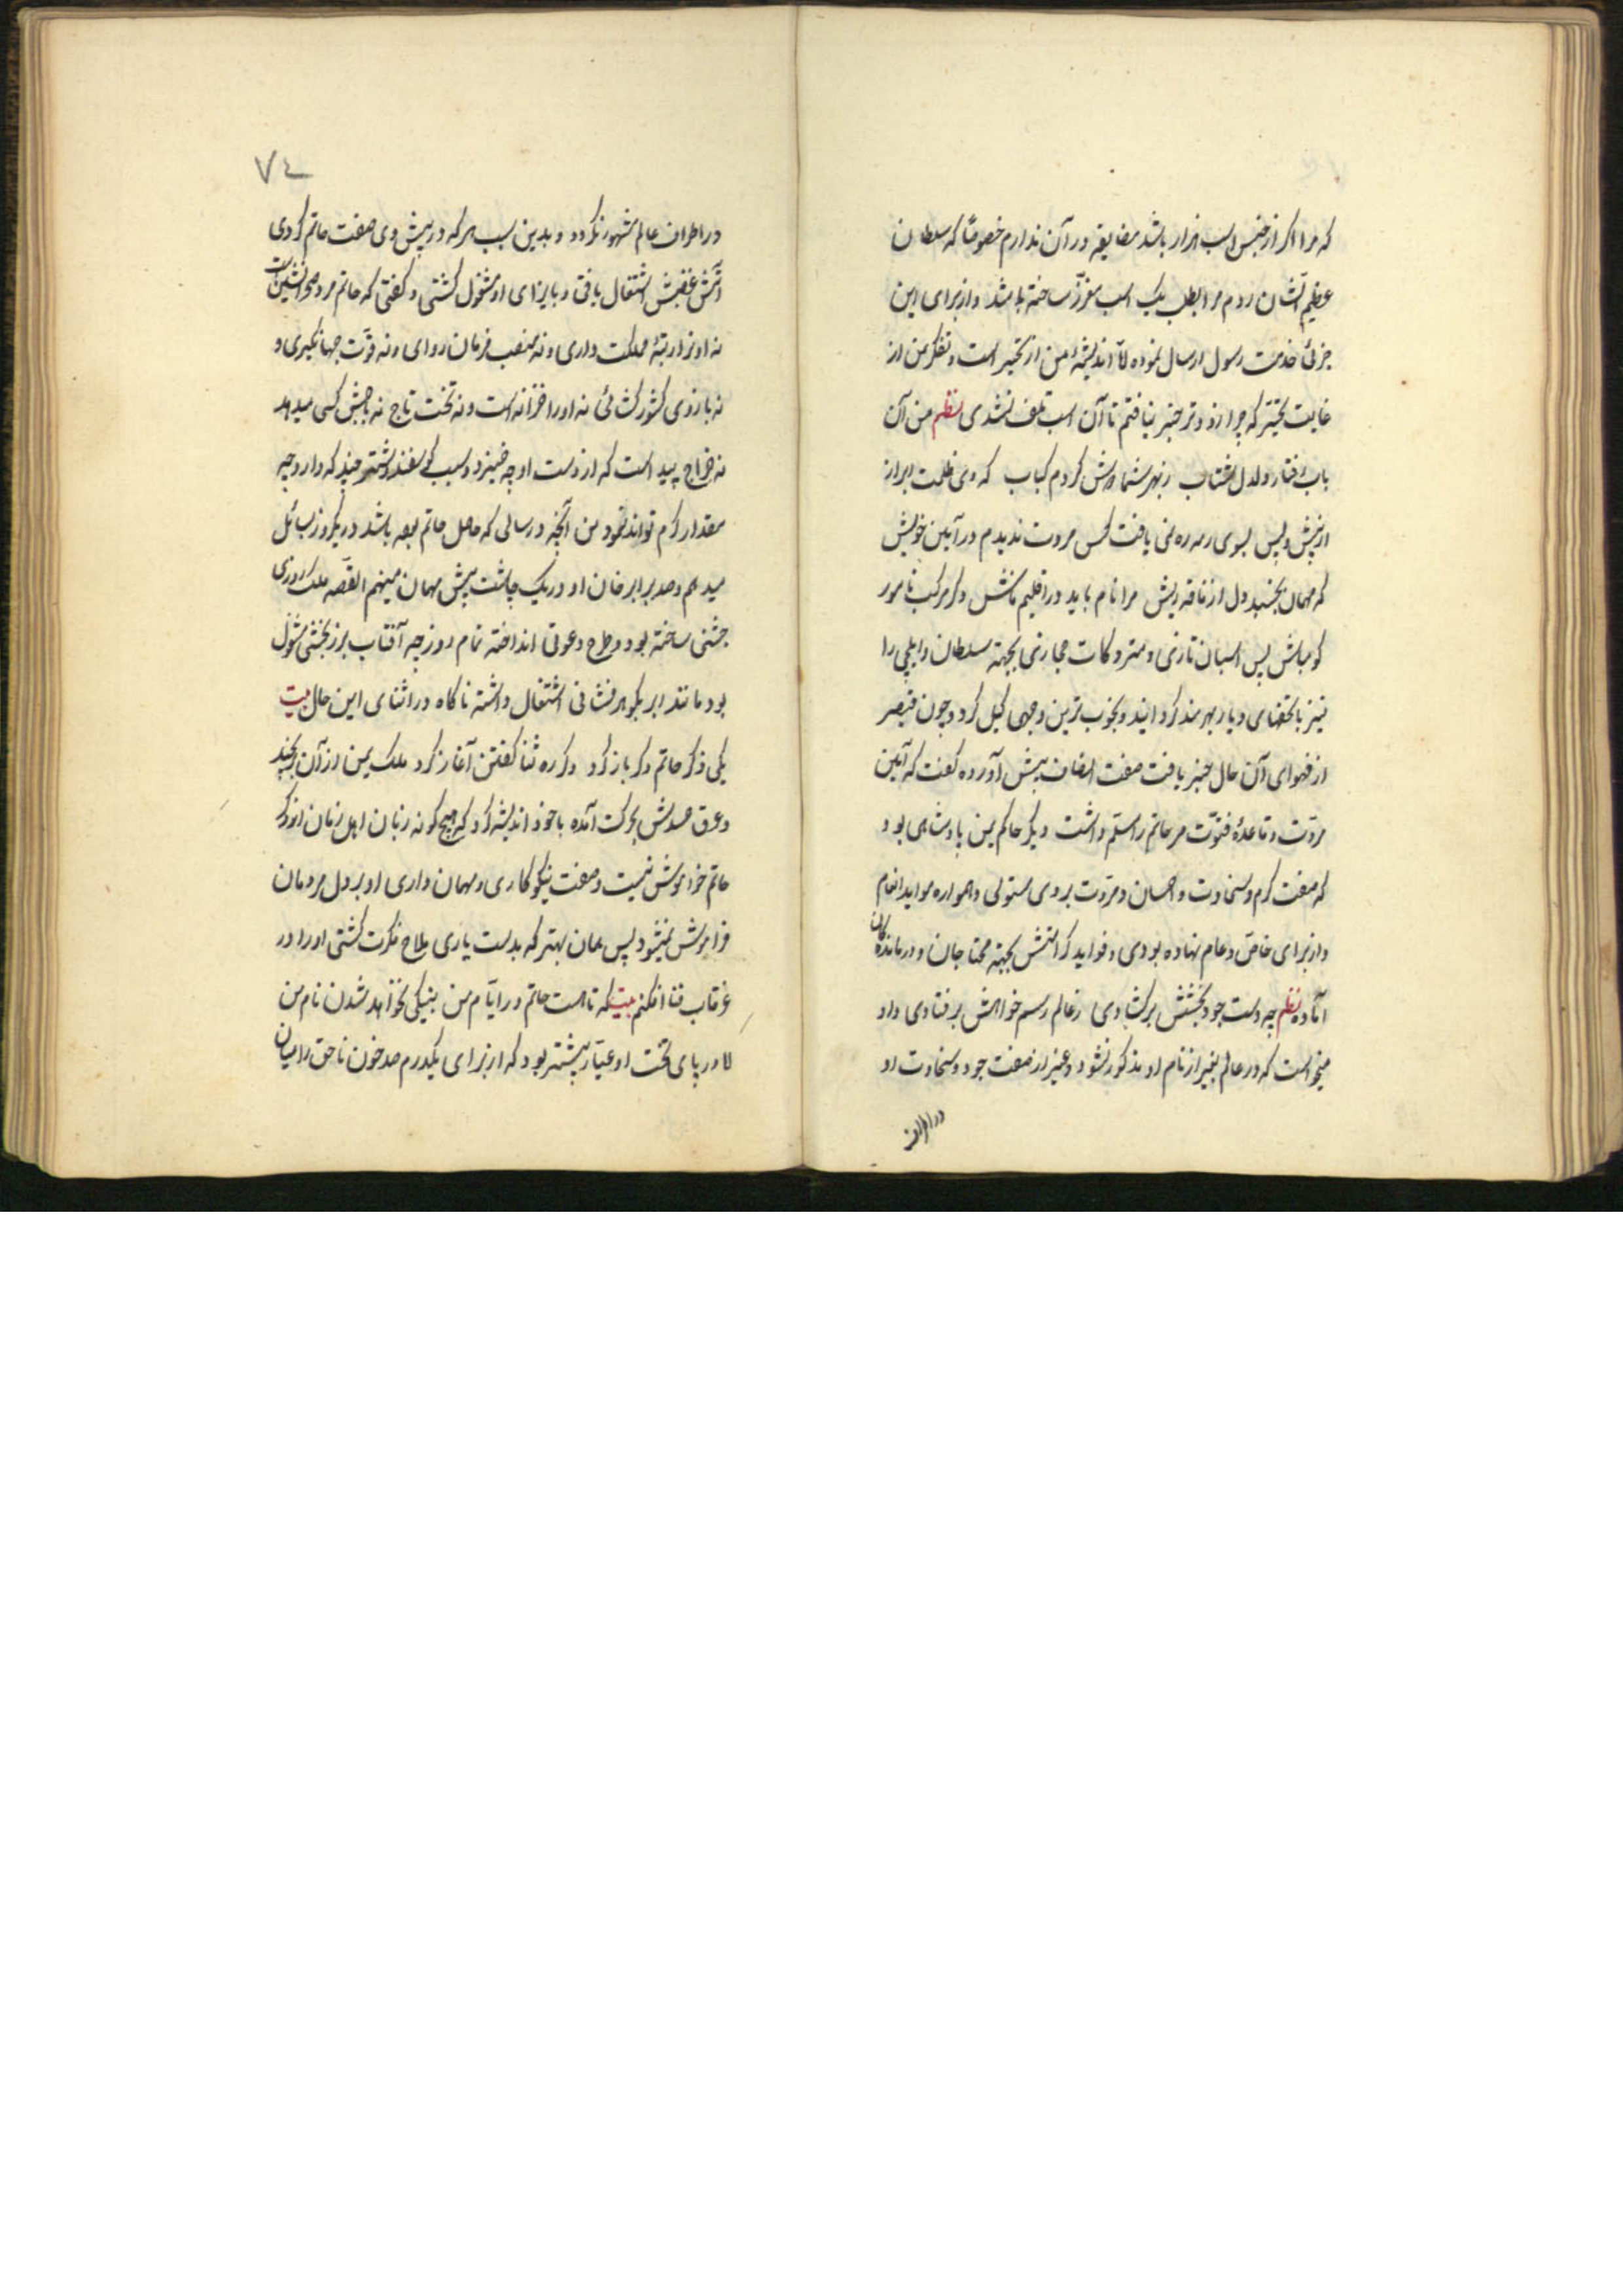 که مرا اگر از جنس اسب هزار باشد مضایقه در آن ندارم خصوصًا که سلطان
عظیم الشان روم مرا بطلب یک اسب معزّز ساخته باشد و از برای این
جزئی خدمت رسول ارسال نموده امّا اندیشهٔ من از تحیر است و تفکر من از
غایت تحیّر که چرا زودتر خبر نیافتم تا آن اسب تلف نشدی نظم من آن
باد رفتار دلدل شتاب ز بهر شما دوش کردم کباب که
از پیش و پس بسوی رمه ره نمی یافت کس مروت ندیدم در آیین خویش
که مهمان بخسپد دل از فاقه ریش مرا نام باید در اقلیم فاش دگر مرکب نامور
گو مباش پس اسبان تازی و متروکات حجازی بجهته سلطان و ایلچی را
نیز با تحفهای دیار بهره مند گردانید و بخوب ترین وجهی گسیل کرد و چون قیصر
از فهوای آن حال خبر یافت صفت انصاف پیش آورده گفت که آیین
مروّت و قاعدهٔ فتوّت مر حاتم را مسلّم داشت دیگر حاکم یمن پادشاهی بود
که صفت کرم و سخاوت و احسان و مروّت بروی مستولی و همواره مواید انعام
و از برای خاصّ و عام نهاده بودی و فواید کرامتش بجهته محتاجان و درماندگان
آماده نظم چه دست جود بخشش برگشادی ز عالم رسم خواهش برفتادی و او
میخواست که در عالم بغیر از نام او مذکور نشود و غیر از صفت جود و سخاوت او
در اطراف
٧٤
در اطراف عالم مشهور نگردد و بدین سبب هر که در پیش وی صفت حاتم کردی
آتش غضبش اشتعال یافتی و بایذای او مشغول گشتی و گفتی که حاتم مرد صحرانشین است
نه او را رتبهٔ مملکت داری و نه منصب فرمان روای و نه قوّت جهانگیری و
نه بازوی کشورکشائی نه او را خزانه است و نه تخت تاج نه باجش کسی میدهد
نه خراج پیداست که از دست او چه خیزد و بسبب گوسفند و شتر چند که دارد چه
مقدار کرم تواند نمود من آنچه در سالی که حاصل حاتم بوده باشد در یکروز بسائل
میدهم و صد برابر خان او در یک چاشت پیش مهمان مینهم القصّه ملک روزی
جشنی ساخته بود و طرح دعوتی انداخته تمام روز چه آفتاب بزر بخشی مشغول
بود مانند ابر بگوهر فشانی اشتغال داشته ناگاه در اثنای این حال بیت
یکی ذکر حاتم دگر باز کرد دگر ره ثنا گفتن آغاز کرد ملک یمن از آن برنجید
و عرق حسدش بحرکت آمده با خود اندیشه کرد که هیچ گونه زبان اهل زمان از ذکر
حاتم خواموش نیست و صفت نیکوکاری و مهمان داری او بر دل مردمان
فراموش نمیشود پس همان بهتر که بدست یاری ملاح فکرت کشتی او را در
غرقاب فنا افکنم بیت که تا هست حاتم در ایّام من بنیکی نخواهد شدن نام من
اما در پای تخت او عیّار پیشه بود که از برای یکدرم صد خون ناحق را میان